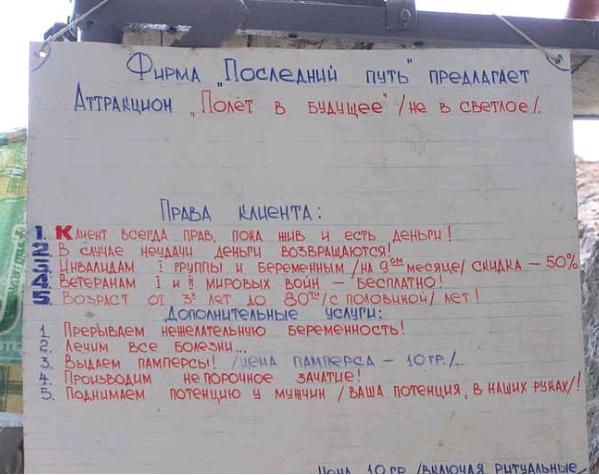 Фирма „Последний путь" предлагает
Аттракцион „Полёт в будущее" /не в светлое/.
Права клиента:
1. Клиент всегда прав, пока жив и есть деньги!
2. В случае неудачи деньги возвращаются!
3. Инвалидам I группы и беременным /на 9ом месяце/ скидка – 50%
4. Ветеранам I и II мировых войн – бесплатно!
5. Возраст от 3х лет до 80ти /с половиной/ лет!
Дополнительные услуги:
1. Прерываем нежелательную беременность!
2. Лечим все болезни...
3. Выдаем памперсы! /цена памперса – 10 гр./
4. Производим не порочное зачатие!
5. Поднимаем потенцию у мужчин /ваша потенция, в наших руках/!
Цена 10 гр /включая ритуальные